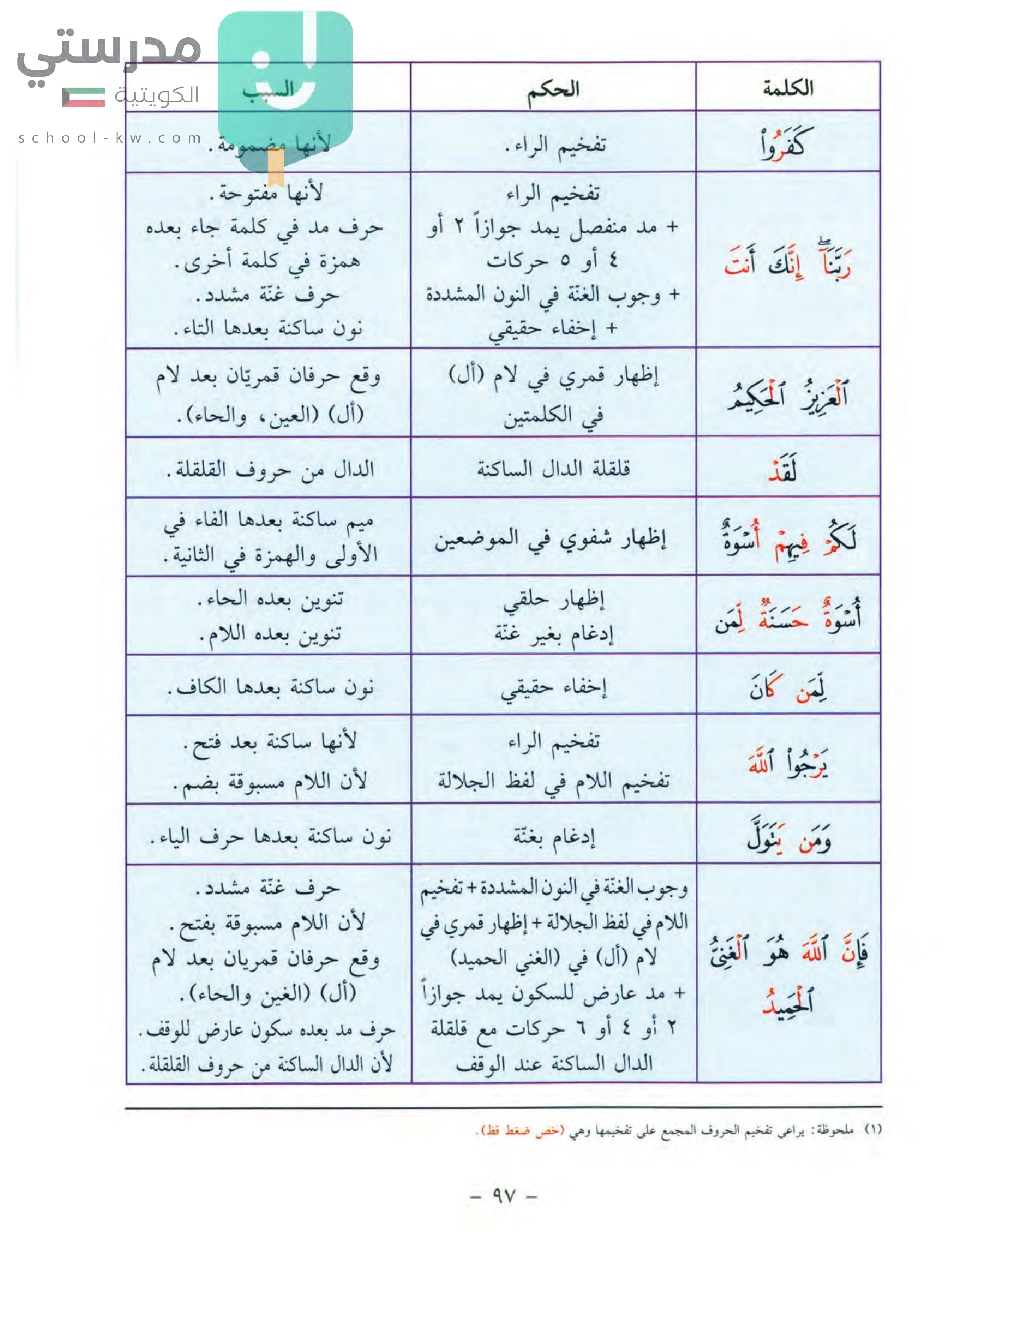 مدرستي
الكويتية
school-kw.com
الكلمة
الحكم
السبب
كَفَرُوا۟
تفخيم الراء.
لأنها مضمومة.
رَبَّنَآ ۖ إِنَّكَ أَنتَ
تفخيم الراء
+ مد منفصل يمد جوازاً ٢ أو
٤ أو ٥ حركات
+ وجوب الغنّة في النون المشددة
+ إخفاء حقيقي
لأنها مفتوحة.
حرف مد في كلمة جاء بعده
همزة في كلمة أخرى.
حرف غنّة مشدد.
نون ساكنة بعدها التاء.
ٱلْعَزِيزُ ٱلْحَكِيمُ
إظهار قمري في لام (أل)
في الكلمتين
وقع حرفان قمريّان بعد لام
(أل) (العين، والحاء).
لَقَدْ
قلقلة الدال الساكنة
الدال من حروف القلقلة.
لَكُمْ فِيهِمْ أُسْوَةٌ
إظهار شفوي في الموضعين
ميم ساكنة بعدها الفاء في
الأولى والهمزة في الثانية.
أُسْوَةٌ حَسَنَةٌ لِّمَن
إظهار حلقي
إدغام بغير غنّة
تنوين بعده الحاء.
تنوين بعده اللام.
لِّمَن كَانَ
إخفاء حقيقي
نون ساكنة بعدها الكاف.
يَرْجُوا۟ ٱللَّهَ
تفخيم الراء
تفخيم اللام في لفظ الجلالة
لأنها ساكنة بعد فتح.
لأن اللام مسبوقة بضم.
وَمَن يَتَوَلَّ
إدغام بغنّة
نون ساكنة بعدها حرف الياء.
فَإِنَّ ٱللَّهَ هُوَ ٱلْغَنِىُّ
ٱلْحَمِيدُ
وجوب الغنّة في النون المشددة + تفخيم
اللام في لفظ الجلالة + إظهار قمري في
لام (أل) في (الغني الحميد)
+ مد عارض للسكون يمد جوازاً
٢ أو ٤ أو ٦ حركات مع قلقلة
الدال الساكنة عند الوقف
حرف غنّة مشدد.
لأن اللام مسبوقة بفتح.
وقع حرفان قمريان بعد لام
(أل) (الغين والحاء).
حرف مد بعده سكون عارض للوقف.
لأن الدال الساكنة من حروف القلقلة.
(١) ملحوظة: يراعى تفخيم الحروف المجمع على تفخيمها وهي (خص ضغط قظ).
- ٩٧ -